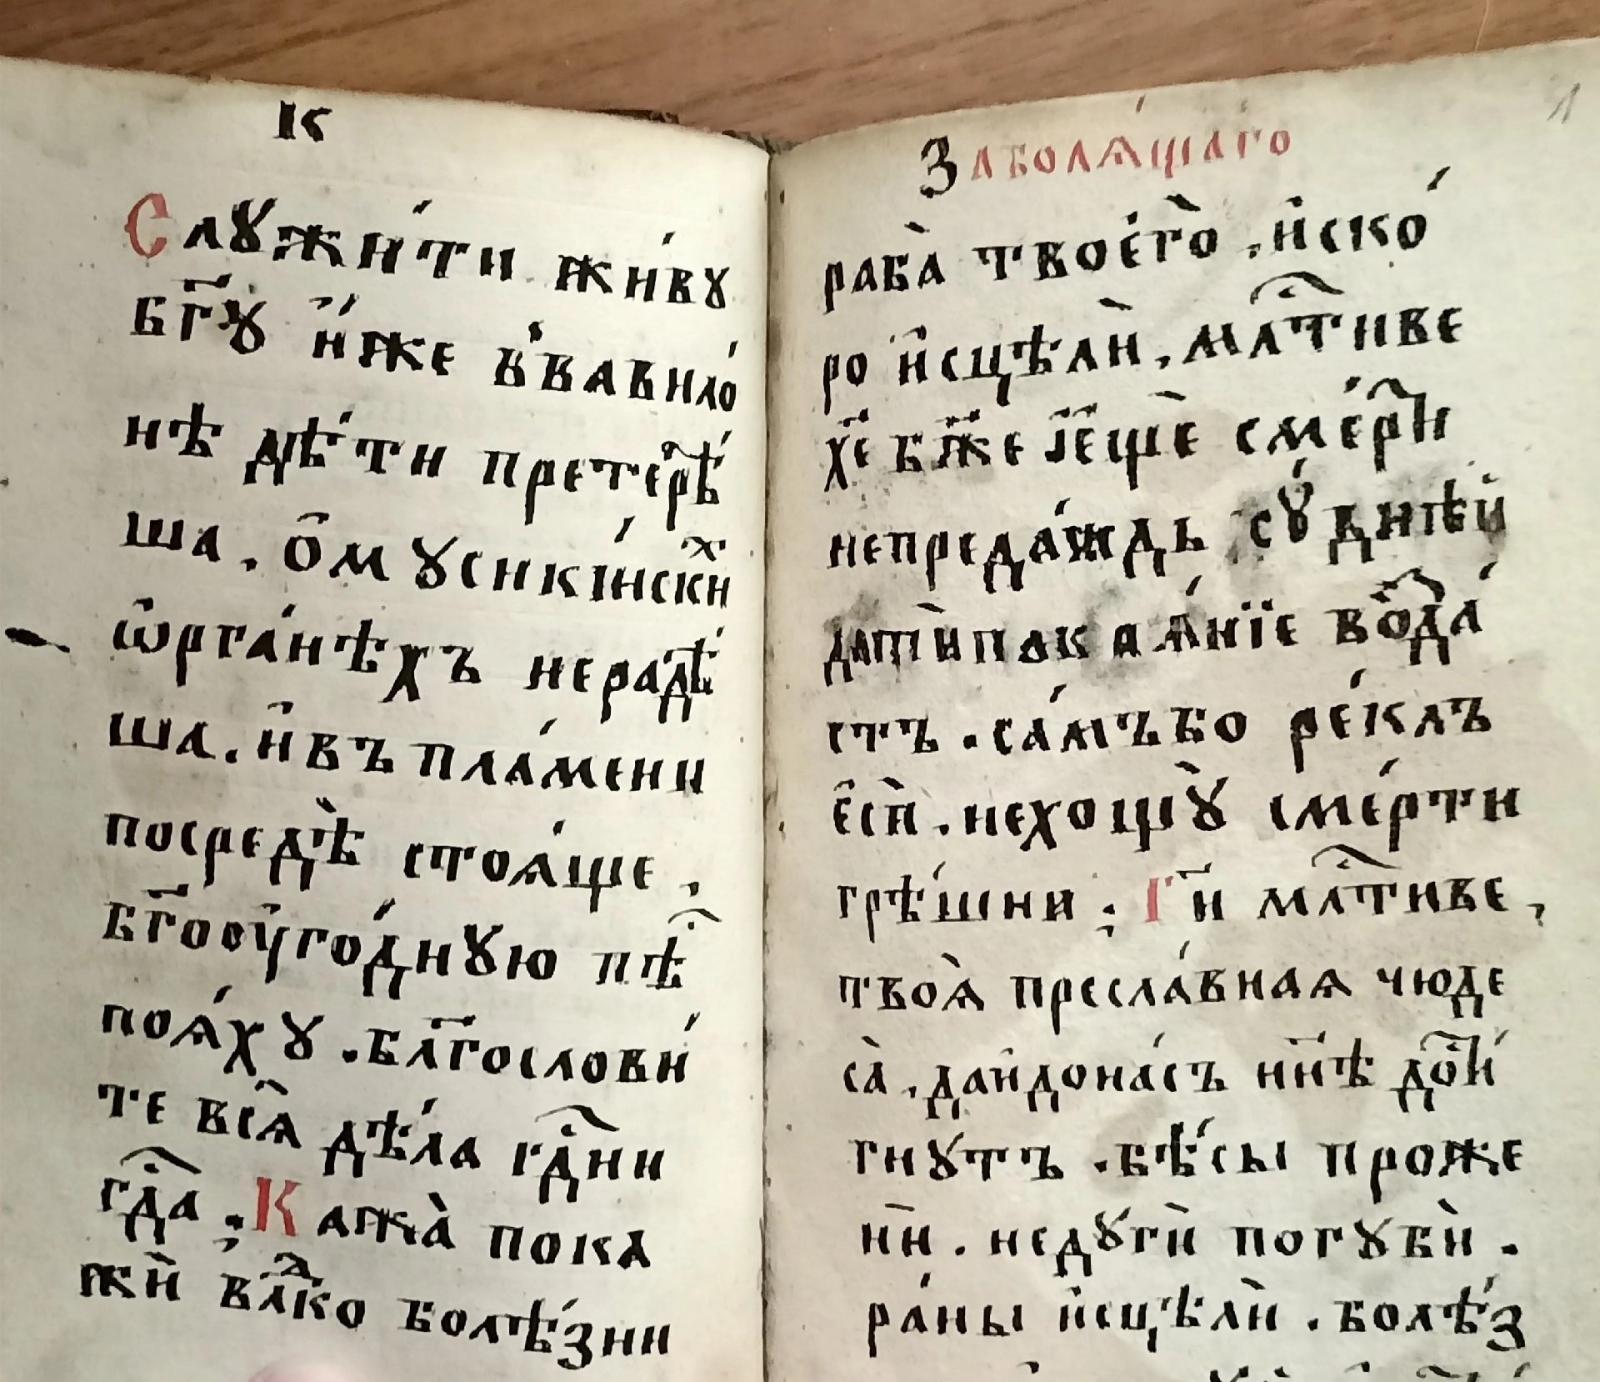 І҃Ѕ
Слꙋжи́ти жи́вꙋ
бг҃ꙋ и҆́же въвави́ло́
нѣ дѣ́ти претерпѣ́
ша. ѻ҆мꙋсики́искихъ
ѡ҆рга́нѣхъ нерадѣ́
ша. и҆въ пла́мени
посредѣ̀ стоѧ́ще,
бг҃оѹго́днꙋю пѣ
поѧ́хꙋ. бл҃гослови́
те всѧ̀ дѣ́ла гдⷭ҇ни
гдⷭ҇а. Кажа̀ пока
жи̑ влⷣко болѣ́зни
Заболѧ́щаго
раба̀ твоего̀. и҆ско́
ро и҆сцѣли̑, млⷭ҇тиве
хе҃ бж҃е є҆щѐ сме́рти
непреда́ждь сꙋднѣ́й
дати̑ покаѧ́нїе во́да́
стъ. са́мъбо ре́клъ
є҆сѝ. нехощꙋ̀ сме́рти
грѣ́шни; Гⷭ҇и млⷭ҇тиве,
твоѧ̀ пресла́внаѧ чюде
са̀. дайдона́съ нн҃ѣ до́и
гнꙋтъ. бѣ́сы проже
нѝ. недꙋгѝ погꙋбѝ.
ра́ны и҆сцѣлѝ. болѣ́з